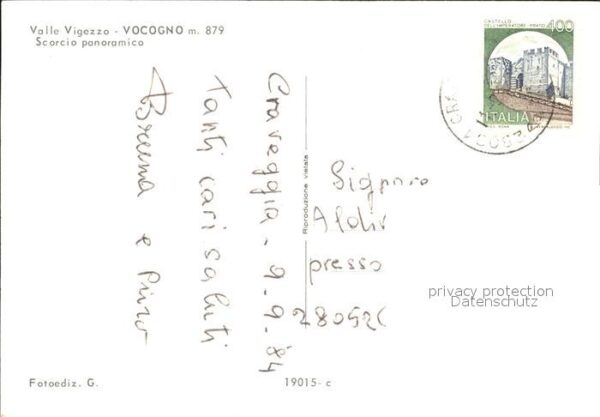 Valle Vigezzo - VOCOGNO m. 879
Scorcio panoramico
Craveggia. 9.9.84
Tanti cari saluti
Bruna e Piero
Riproduzione vietata
CASTELLO
DELL'IMPERATORE - PRATO
400
ITALIA
Signora
presso
privacy protection
Datenschutz
Fotoediz. G.
19015-c